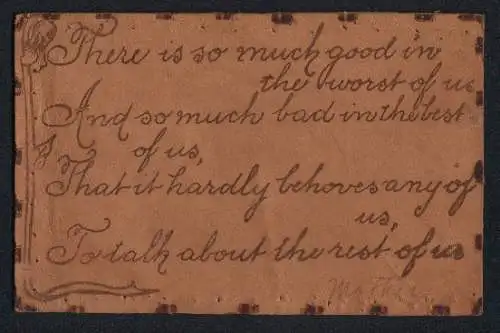 There is so much good in
the worst of us
And so much bad in the best
of us,
That it hardly behoves any of
us,
To talk about the rest of us